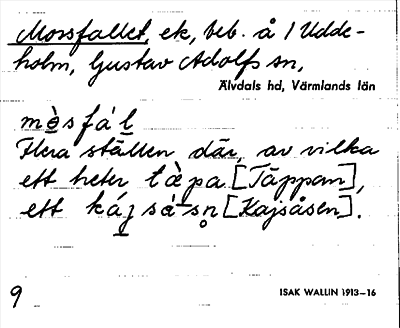 Morsfallet, ek, beb. å / Udde-
holm, Gustav Adolfs sn,
Älvdals hd, Värmlands län
mə̀sfál
Flera ställen där, av vilka
ett heter tæ̀pa [Täppan],
ett kájså-sn̥ [Kajsåsen].
9
ISAK WALLIN 1913–16